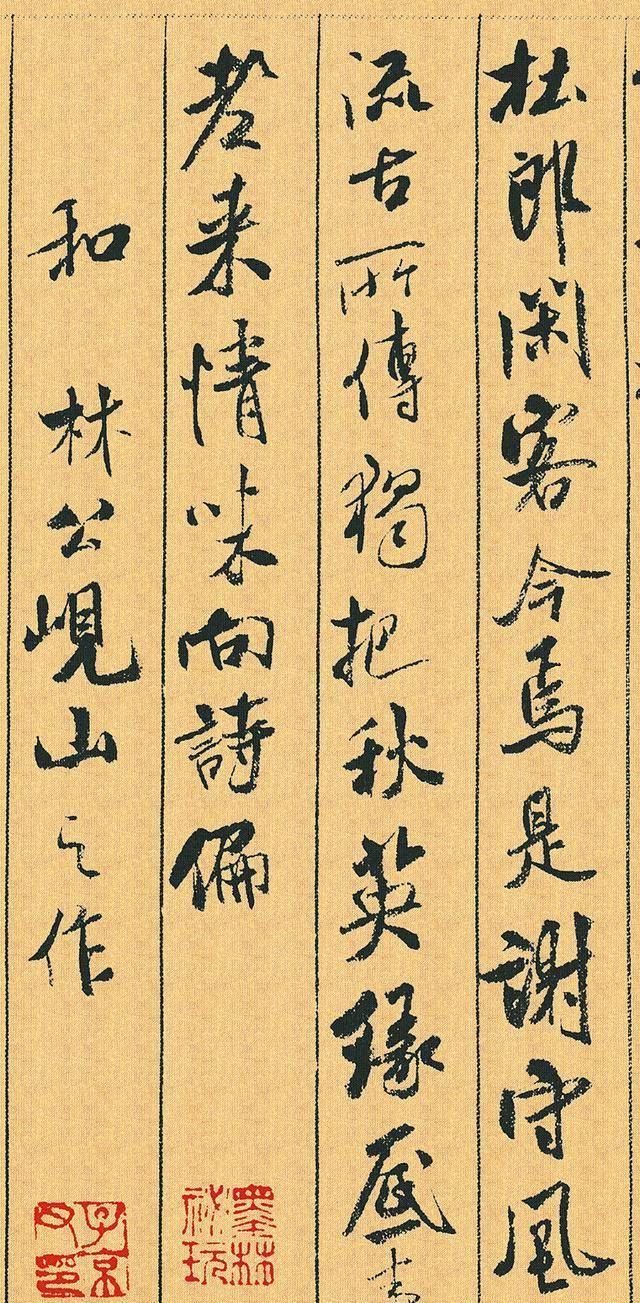 杜郎閑客今焉是謝守風
流古所傳獨把秋英緣底
老来情味向詩偏
和 林公峴山之作
墨林秘玩
子京父印